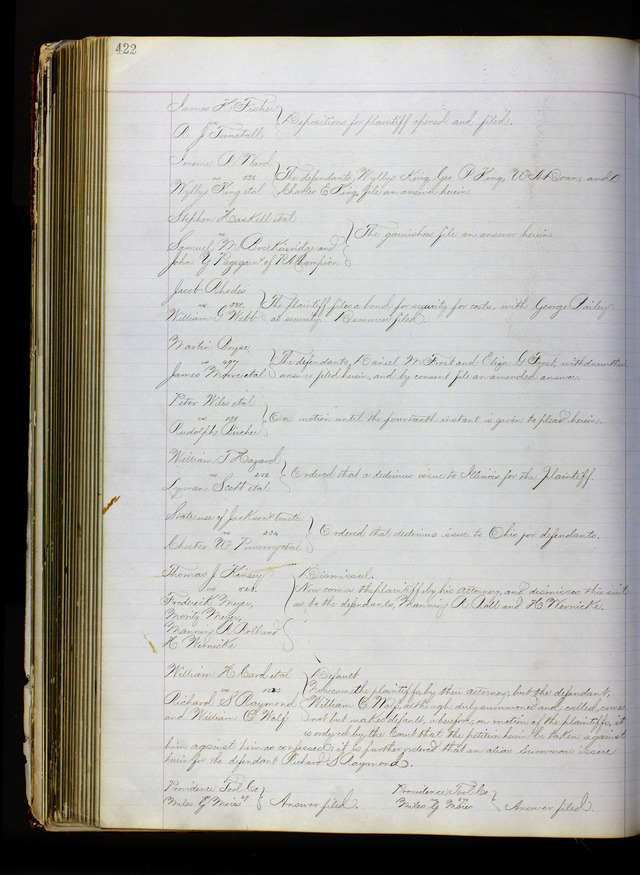 422
James H Fisher
vs
D. J. Tunstall
Depositions for plaintiff opened and filed.
Jerome A Ward
vs 536
Wyllys King et al
The defendants, Wyllys King, Geo P King, and
Charles E King, file an answer herein.
Stephen Haskell et al
vs
Samuel M. Breckinridge and
John Y Page gar of
The garnishees file an answer herein.
Jacob Rhodes
vs
William G Webb
The plaintiff files a bond for security for costs, with George Bailey
as security. Demurrer filed.
Martin
vs 497
James et al
The defendants, Daniel M Frost and Eliza G Frost, withdraw their
answer filed herein, and by consent file an amended answer.
Peter Wiles et al
vs 139
Rudolph Bircher
On motion until the fourteenth instant is given to plead herein.
William T Hazard
vs
Lyman Scott et al
Ordered that a dedimus issue to Illinois for the Plaintiff.
State use of Jackson trustee
vs 254
Chester W et al
Ordered that dedimus issue to Ohio for defendants.
Thomas J. Kinsey
vs
Frederick Meyer,
Moritz Meyer,
Manning R Roll and
H Wernicke
Dismissal.
Now comes the plaintiff by his attorney, and dismisses this suit
as to the defendants, Manning R Roll and H Wernicke.
William H Card et al
vs
Richard S Raymond
and William C Wolf
Default
Now come the plaintiffs by their attorney, but the defendant,
William C Wolf although duly summoned and called, comes
not but makes default, wherefore, on motion of the plaintiffs, it
is ordered by the Court that the petition herein be taken against
him against him as confessed; it is further ordered that an alias summons issue
herein for the defendant Richard S Raymond.
Providence Tool Co
vs
Miles G Moies
Answer filed.
Providence Tool Co
vs
Miles G Moies
Answer filed.